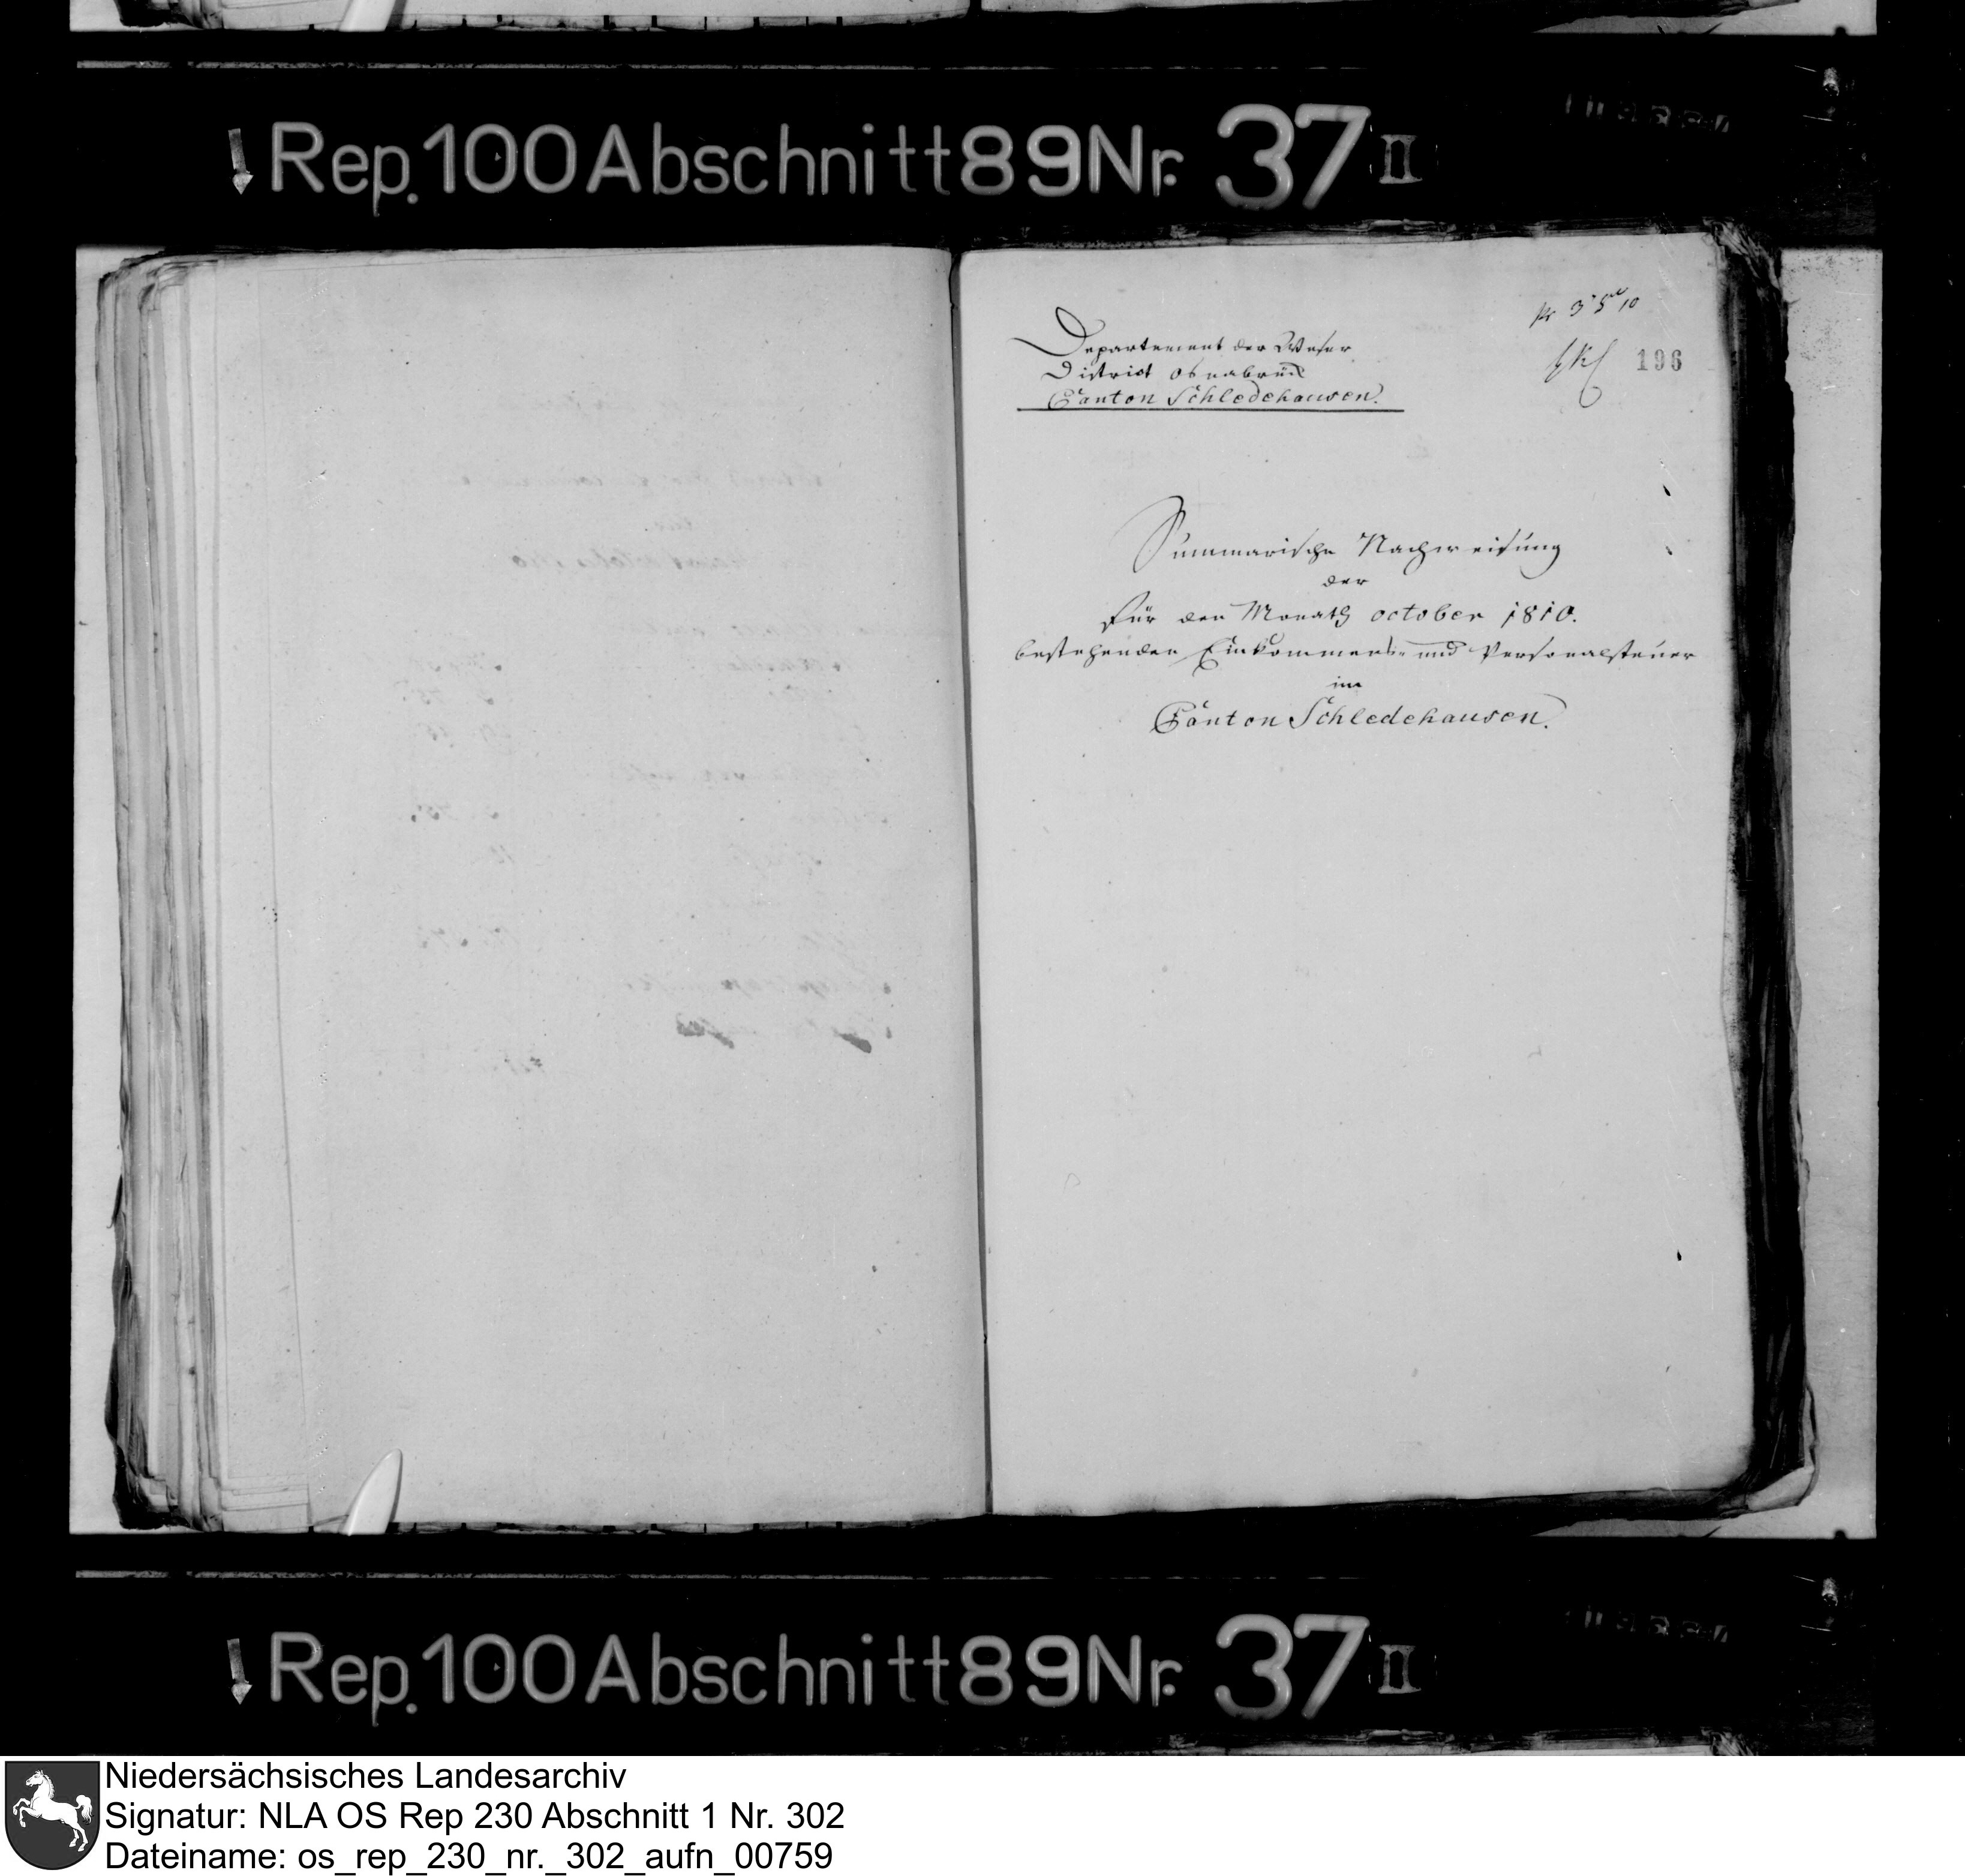 Rep. 100 Abschnitt 89 Nr. 37 II
Departement der Weser
District Osnabrück
Canton Schledehausen.
196
Summarische Nachweisung
der
für den Monath October 1810.
bestehenden Einkommens- und Personalsteuer
im
Canton Schledehausen.
Rep. 100 Abschnitt 89 Nr. 37 II
Niedersächsisches Landesarchiv
Signatur: NLA OS Rep 230 Abschnitt 1 Nr. 302
Dateiname: os_rep_230_nr._302_aufn_00759